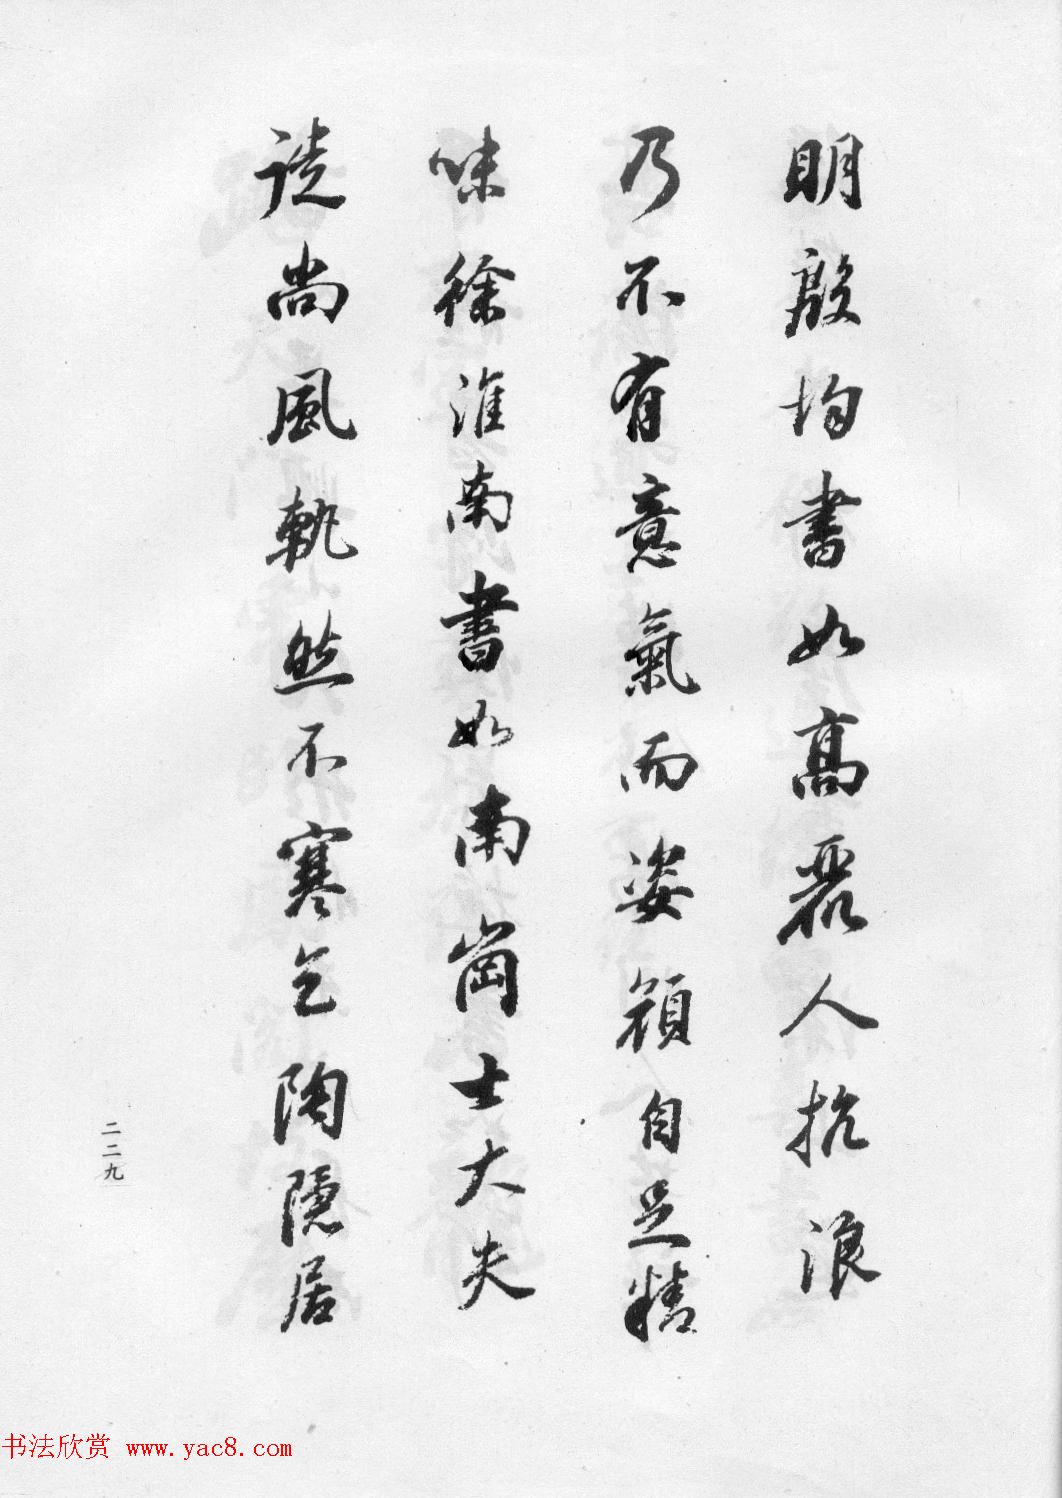 明殷均書如高麗人抗浪
乃不有意氣而姿顏自足精
味徐淮南書如南崗士大夫
徒尚風軌然不寒乞陶隱居
二二九
书法欣赏 www.yac8.com